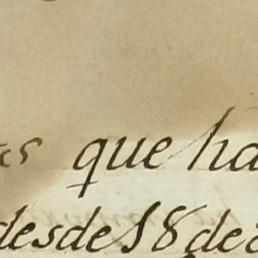 que ha
desde 18 de